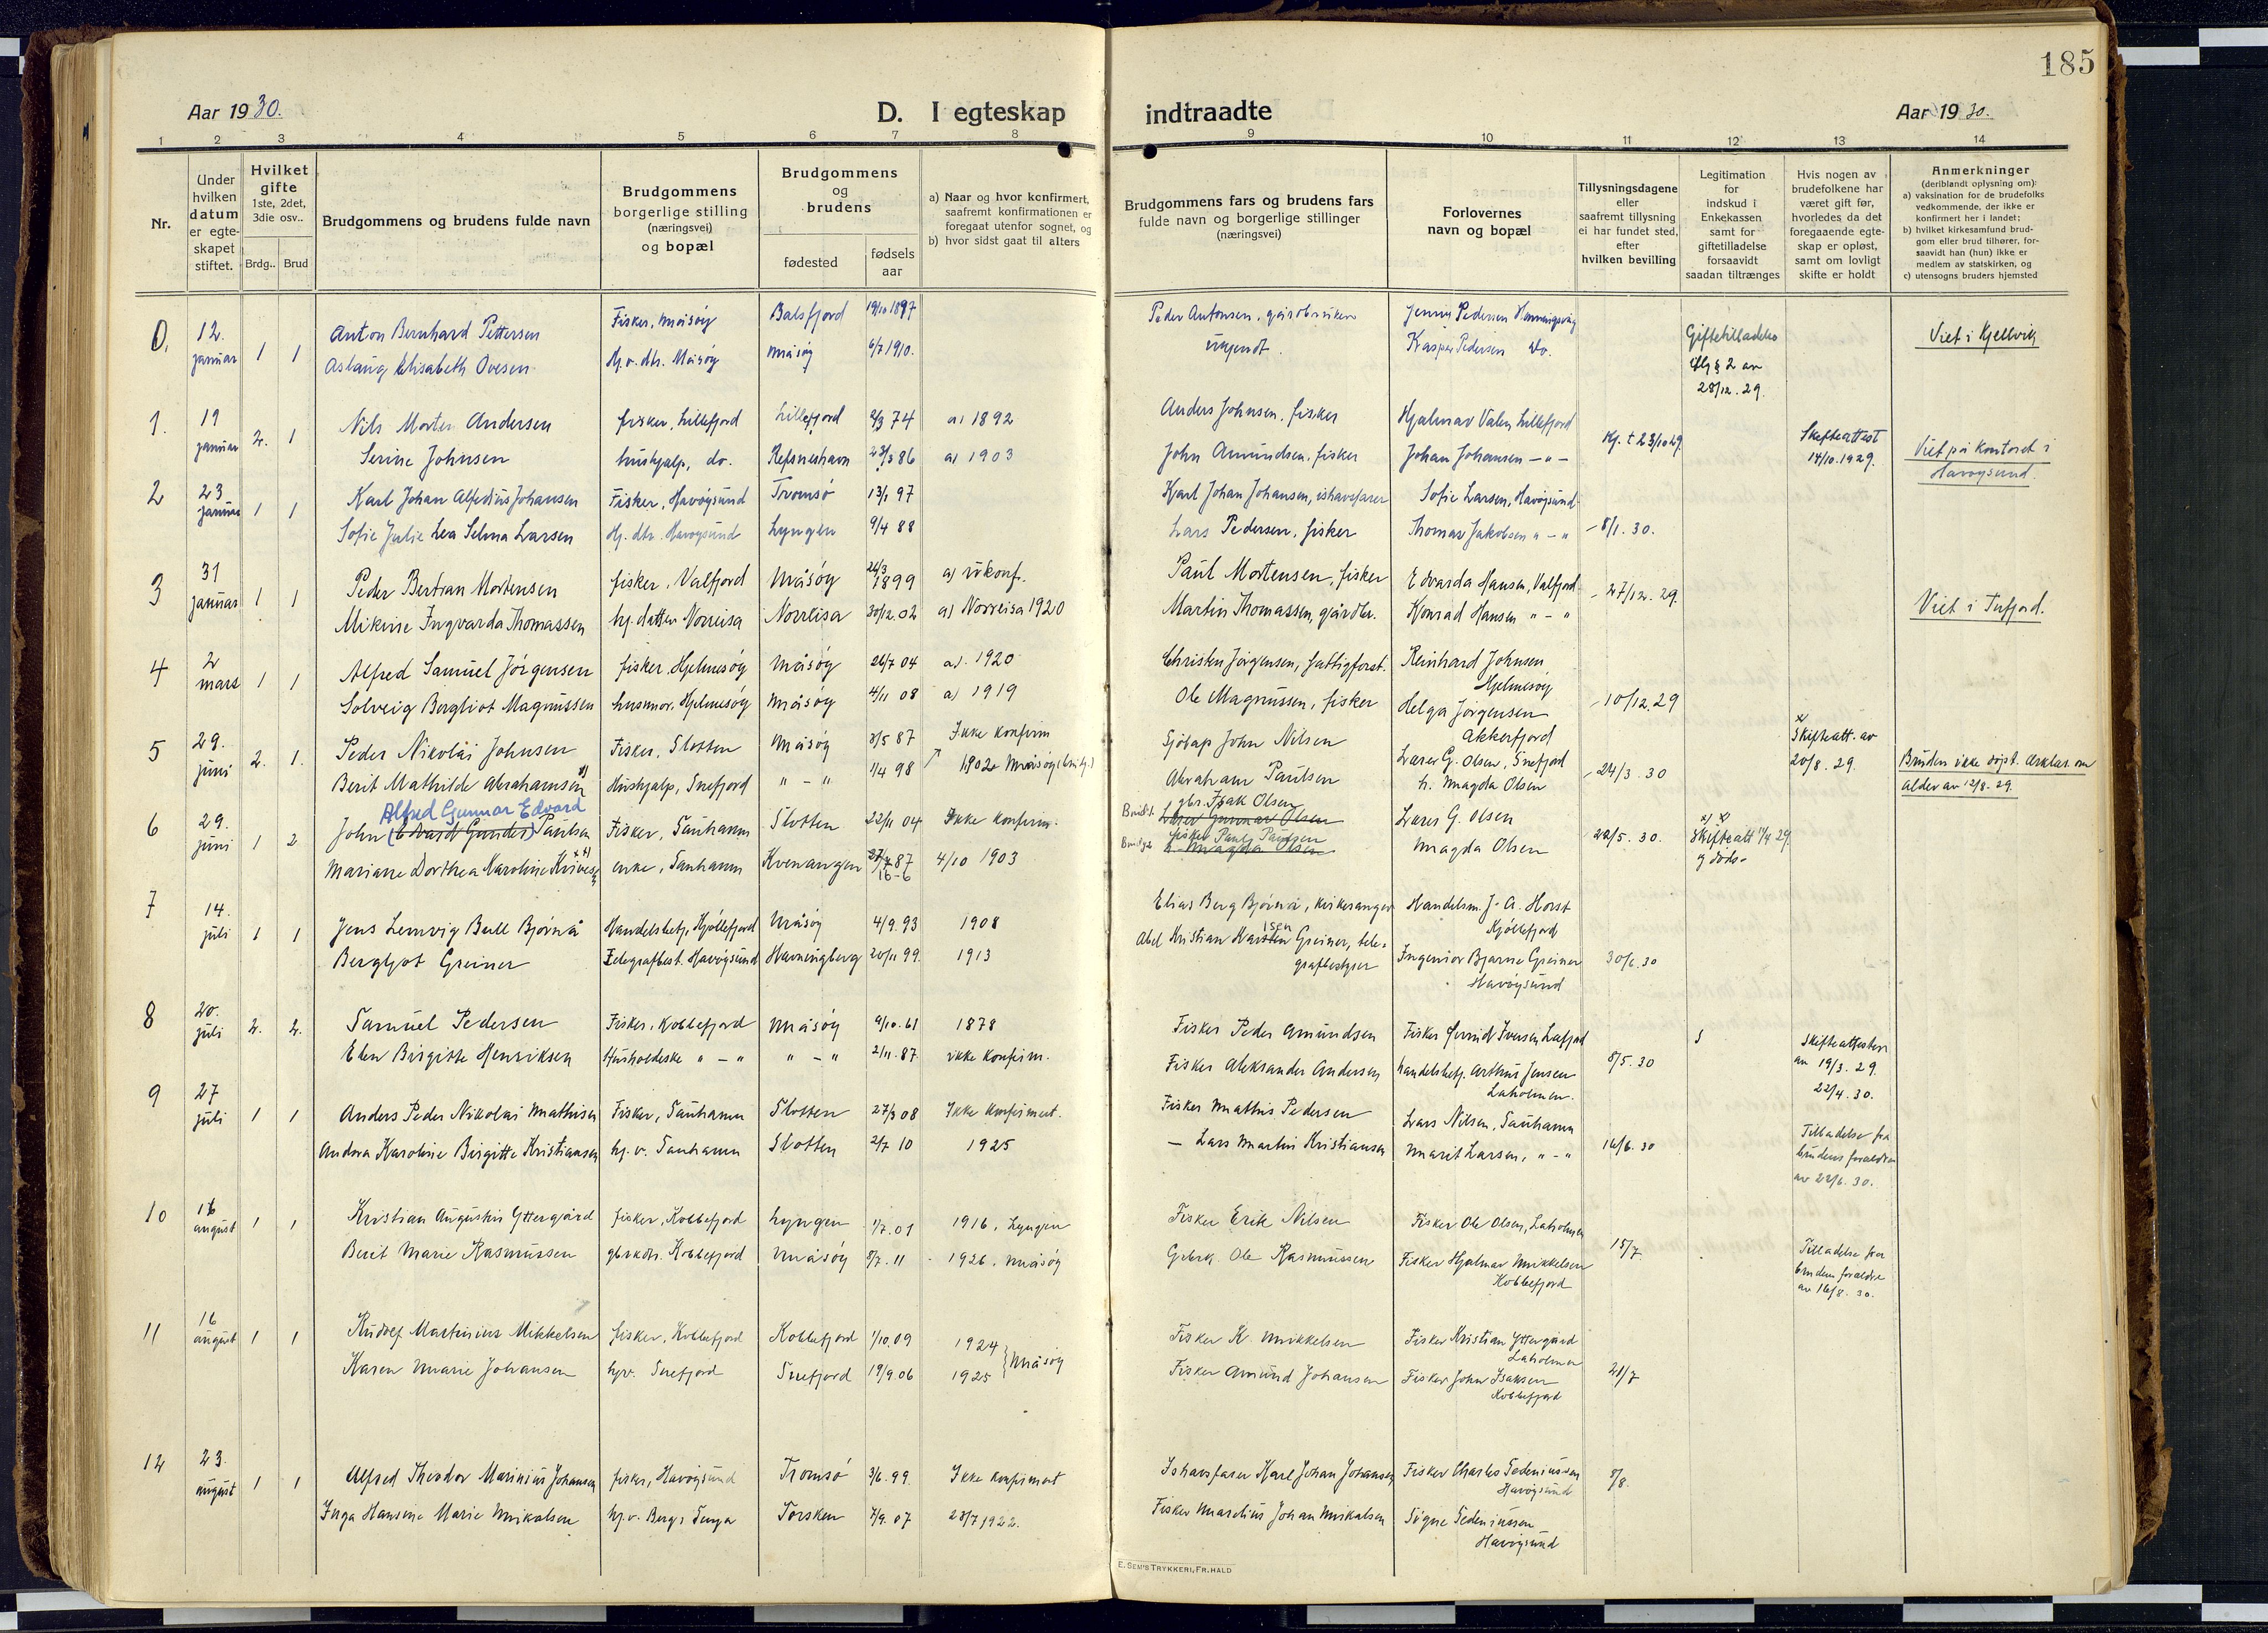 185
Aar 1930.
D. I egteskap indtraadte
Aar 1930.
1 2 3 4 5 6 7 8 9 10 11 12 13 14
Nr.
Under hvilken datum er egte-skapet stiftet.
Hvilket gifte 1ste, 2det, 3die osv..
Brdg.. Brud
Brudgommens og brudens fulde navn
Brudgommens borgerlige stilling (næringsvei) og bopæl
Brudgommens og brudens
fødested
fødsels aar
a) Naar og hvor konfirmert, saafremt konfirmationen er foregaat utenfor sognet, og
b) hvor sidst gaat til alters
Brudgommens fars og brudens fars fulde navn og borgerlige stillinger (næringsvei)
Forlovernes navn og bopæl
Tillysningsdagene eller saafremt tillysning ei har fundet sted, efter hvilken bevilling
Legitimation for indskud i Enkekassen samt for giftetilladelse forsaavidt saadan tiltrænges
Hvis nogen av brudefolkene har været gift før, hvorledes da det foregaaende egte-skap er opløst, samt om lovligt skifte er holdt
Anmerkninger (deriblandt oplysning om):
a) vaksination for de brudefolks vedkommende, der ikke er konfirmert her i landet;
b) hvilket kirkesamfund brud-gom eller brud tilhører, for-saavidt han (hun) ikke er medlem av statskirken, og
c) utensogns bruders hjemsted
0. 12. januar 1 1
Anton Bernhard Pettersen Fisker, Måsøy Balsfjord 19/10 1897 Peder Antonsen, gårdbruker Pedersen Honningsvåg
Aslaug Elisabeth Ovesen Måsøy Måsøy 6/7 1910. Kasper Pedersen do.
Giftetilladelse § 2 av 28/12. 29.
Viet i Kjellvik
1. 19 januar 2. 1
Nils Morten Andersen fisker, Lillefjord Lillefjord 74 a) 1892 Anders Johnsen, fisker Hjalmar Valen Lillefjord
Serine Johnsen hushjalp, do. Refsneshavn 86 a) 1903 John Amundsen, fisker Johan Johansen - " -
23/10 29. Skifteattest 14/10. 1929. Viet på kontoret i Havøysund.
2 23 januar 1 1
Karl Johan Alfedius Johansen Fisker, Havøysund Tromsø 13/1 97 Karl Johan Johansen, ishavsfarer Sofie Larsen, Havøysund
Sofie Julie Lea Selma Larsen Hj. dtr. Havøysund Lyngen 9/4 88 Lars Pedersen, fisker Thomas Jakobsen " - " - 8/1. 30.
3 31 januar 1 1
Peder Bertran Mortensen fisker, Valfjord Måsøy 1899 a) ukonf. Paul Mortensen, fisker Edvarda Hansen, Valfjord
Mikine Ingvarda Thomassen hj. datter Norreisa Norreisa 30/12. 02 a) Norreisa 1920 Martin Thomassen, gårdbr. Konrad Hansen " - " - 27/12. 29.
Viet i Tufjord.
4 2 mars 1 1
Alfred Samuel Jørgensen fisker, Hjelmesøy Måsøy 26/7 04 a). 1920 Christen Jørgensen, fattigforst. Reinhard Johnsen Hjelmesøy
Solveig Bergliot Magnussen husmor, Hjelmesøy Måsøy 4/11 08 a) 1919 Ole Magnussen, fisker Helga Jørgensen Akkerfjord - 10/12. 29
5 29. juni 2. 1.
Peder Nikolai Johnsen Fisker, Slotten Måsøy 3/5 87 Ikke konfirm Sjøsap John Nilsen Lærer G. Olsen, Snefjord
Berit Mathilde Abrahamsen Hushjalp, Snefjord " - " 1/4 98 1902 Måsøy Abraham Paulsen h. Magda Olsen - 24/3. 30
Skifteatt. av 20/8. 29. Bruden ikke døpt. om alder av 12/8. 29.
6 29. juni 1 2
Alfred Gunnar Edvard
John (Edvard Gunder) Paulsen Fisker, Sauhamn Slotten 22/11 04 Ikke konfirm. gbr. Isak Olsen Lærer Gunnar Olsen Lærer G. Olsen
Mariane Dorthea Karoline enke, Sauhamn Kvenangen 87 16-6 4/10 1903 fisker Paul Paulsen h. Magda Olsen Magda Olsen 22/5. 30.
Skifteatt 11/4 29. og døds-
7 14. juli 1 1
Jens Lemvig Bull Bjørnå Handelsbetj, Kjøllefjord Måsøy 4/9. 93 1908 Elias Berg Bjørnå, kirkesanger Handelsm. J. A. Horst Kjøllefjord
Bergljot Greiner Telegrafbest. Havøysund Havningberg 20/11 99. 1913 Abel Kristian Greiner, tele-grafbestyrer Ingeniør Bjarne Greiner Havøysund 30/6. 30
8 20. juli 2. 2.
Samuel Pedersen Fisker, Kobbefjord Måsøy 9/10. 61 1878 Fisker Peder Amundsen Fisker Iversen
Elen Birgitte Henriksen Husholderske " - " " - " 2/11. 87. ikke konfirm. Fisker Aleksander Andersen handelsbetj. Arthur Jensen Laholmen. 8/5. 30
Skifteattester av 19/3. 29. 22/4. 30.
9 27 juli 1 1
Anders Peder Nikolai Mathisen Fisker, Sauhamn Slotten 27/3 08 Ikke konfirmert. Fisker Mathis Pedersen Lars Nilsen, Sauhamn
Andora Karoline Birgitte Kristiansen hj. v. Sauhamn Slotten 2/7 10 1925 - Lars Martin Kristiansen Marit Larsen, " - " 16/6. 30
Tilladelse fra brudens foraldre av 22/6. 30.
10 16 august 1 1
Kristian Augustin Yttergård fisker, Kobbefjord Lyngen 1/7. 01 1916. Lyngen Fisker Erik Nilsen Fisker Ole Olsen, Laholmen
Berit Marie Rasmussen gbrkdtr. Kobbefjord Måsøy 8/7. 11 1926. Måsøy Gbrk. Ole Rasmussen Fisker Hjalmar Mikkelsen Kobbefjord 15/7.
Tilladelse fra brudens foraldre av 16/8. 30.
11 16 august 1 1
Rudolf Martinius Mikkelsen fisker, Kobbefjord Kobbefjord 1/10. 09 1924 Fisker K. Mikkelsen Fisker Kristian Yttergård Laholmen
Karen Marie Johansen hjv. Snefjord Snefjord 19/9. 06 1925 Måsøy Fisker Amund Johansen Fisker John Isaksen Kobbefjord 21/7
12 23. august 1 1
Alfred Theodor Marinius Johansen fisker, Havøysund Tromsø 3/6. 99 Ikke konfirmert Ishavsfarer Karl Johan Johansen Fisker Charles Sedeniussen Havøysund 8/8.
Inga Hansine Marie Mikalsen hj. v. Berg i Senja Torsken 7/9. 07 28/7 1922. Fisker Marelius Johan Mikalsen Signe Sedeniussen Havøysund
E. SEM'S TRYKKERI, FR.HALD